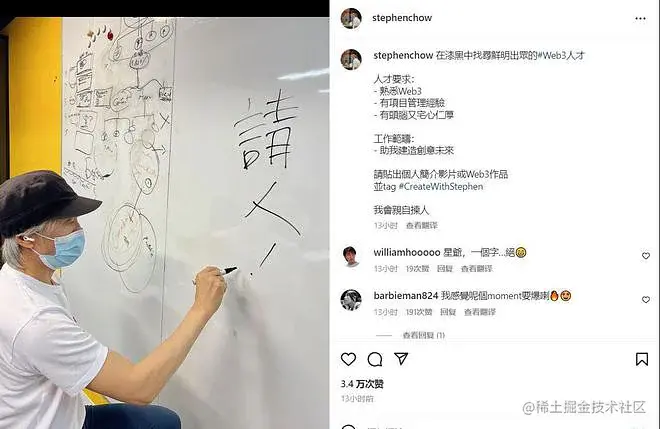 請
人
!
stephenchow
stephenchow 在漆黑中找尋鮮明出眾的#Web3人才
人才要求：
- 熟悉Web3
- 有項目管理經驗
- 有頭腦又宅心仁厚
工作範疇：
- 助我建造創意未來
請貼出個人簡介影片或Web3作品
並tag #CreateWithStephen
我會親自揀人
13小时 查看翻译
williamhooooo 星爺，一個字...絕😄
13小时 19次赞 回复 查看翻译
barbieman824 我感覺呢個moment要爆喇🔥😍
13小时 191次赞 回复 查看翻译
查看回复 (1)
3.4 万次赞
13小时前
@稀土掘金技术社区